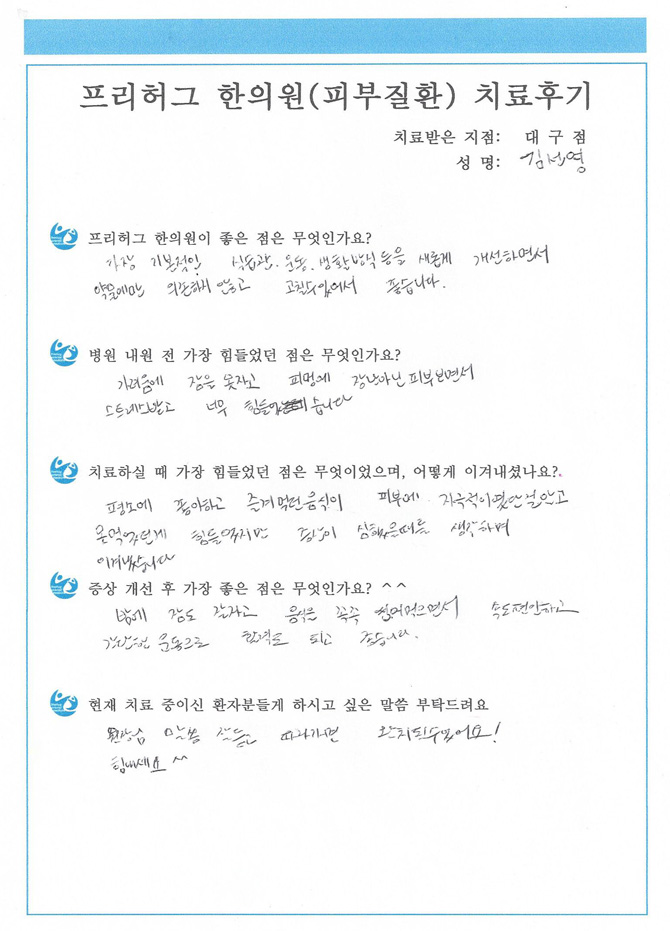 프리허그 한의원(피부질환) 치료후기
치료받은 지점: 대 구 점
성 명: 김선영
프리허그 한의원이 좋은 점은 무엇인가요?
가장 기본적인 식습관. 운동. 생활방식 등을 새롭게 개선하면서
약물에만 의존하지 않고 고칠수있어서 좋습니다.
병원 내원 전 가장 힘들었던 점은 무엇인가요?
가려움에 잠을 못자고 장난아닌 피부보면서
스트레스받고 너무 힘들었습니다
치료하실 때 가장 힘들었던 점은 무엇이었으며, 어떻게 이겨내셨나요?.
평소에 좋아하고 즐겨먹던음식이 피부에 자극적이였단걸알고
못먹었던게 힘들었지만 증상이 심했을때를 생각하며
이겨냈습니다
증상 개선 후 가장 좋은 점은 무엇인가요? ^^
밤에 잠도 잘자고 음식을 꼭꼭 씹어먹으면서 속도편안하고
간단한 운동으로 활력도 되고 좋습니다.
현재 치료 중이신 환자분들게 하시고 싶은 말씀 부탁드려요
원장님 말씀 잘듣고 따라가면 완치될수있어요!
힘내세요 ^^